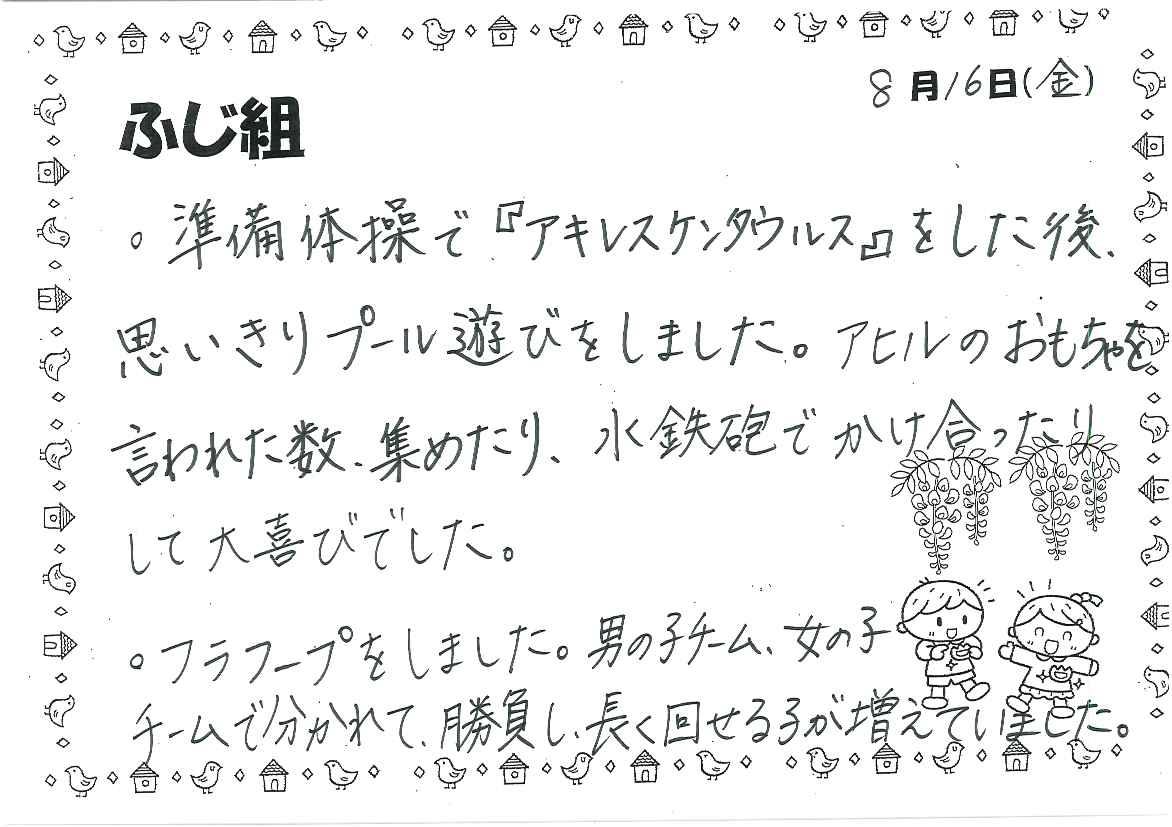 8月16日(金)
ふじ組
。準備体操で『アキレスケンタウルス』をした後、
思いきりプール遊びをしました。アヒルのおもちゃを
言われた数、集めたり、水鉄砲でかけ合ったり
して大喜びでした。
。フラフープをしました。男の子チーム、女の子
チームで分かれて、勝負し、長く回せる子が増えていました。